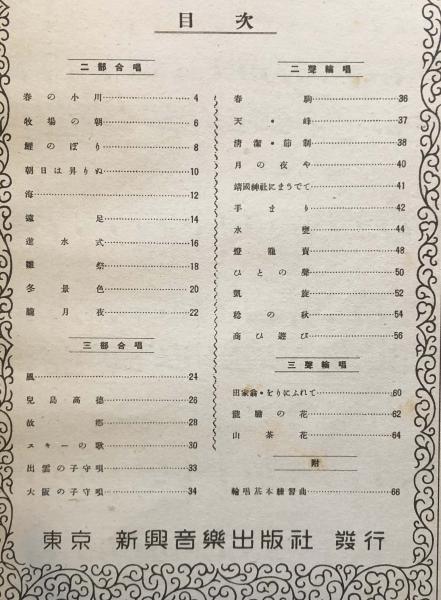 目次
二部合唱
春の小川 4
牧場の朝 6
鯉のぼり 8
朝日は昇りぬ 10
海 12
遠足 14
進水式 16
雛祭 18
冬景色 20
朧月夜 22
三部合唱
風 24
兒島高德 26
故鄕 28
スキーの歌 30
出雲の子守唄 33
大阪の子守唄 34
二聲輪唱
春駒 36
天・峰 37
淸潔・節制 38
月の夜や 40
靖國神社にまうでて 41
手まり 42
水甕 44
燈籠賣 48
ひとの聲 50
凱旋 52
稔の秋 54
商ひ遊び 56
三聲輪唱
田家翁・をりにふれて 60
龍膽の花 62
山茶花 64
附
輪唱基本練習曲 66
東京 新興音樂出版社 發行